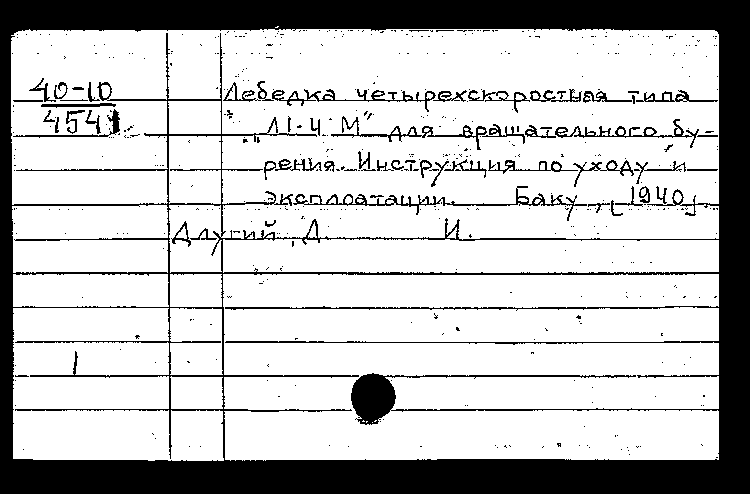 40-10
4541
Лебедка четырехскоростная типа
"Л1-4 М" для вращательного бу-
рения. Инструкция по уходу и
эксплоатации. Баку, [1940].
Длугий, Д. И.
1